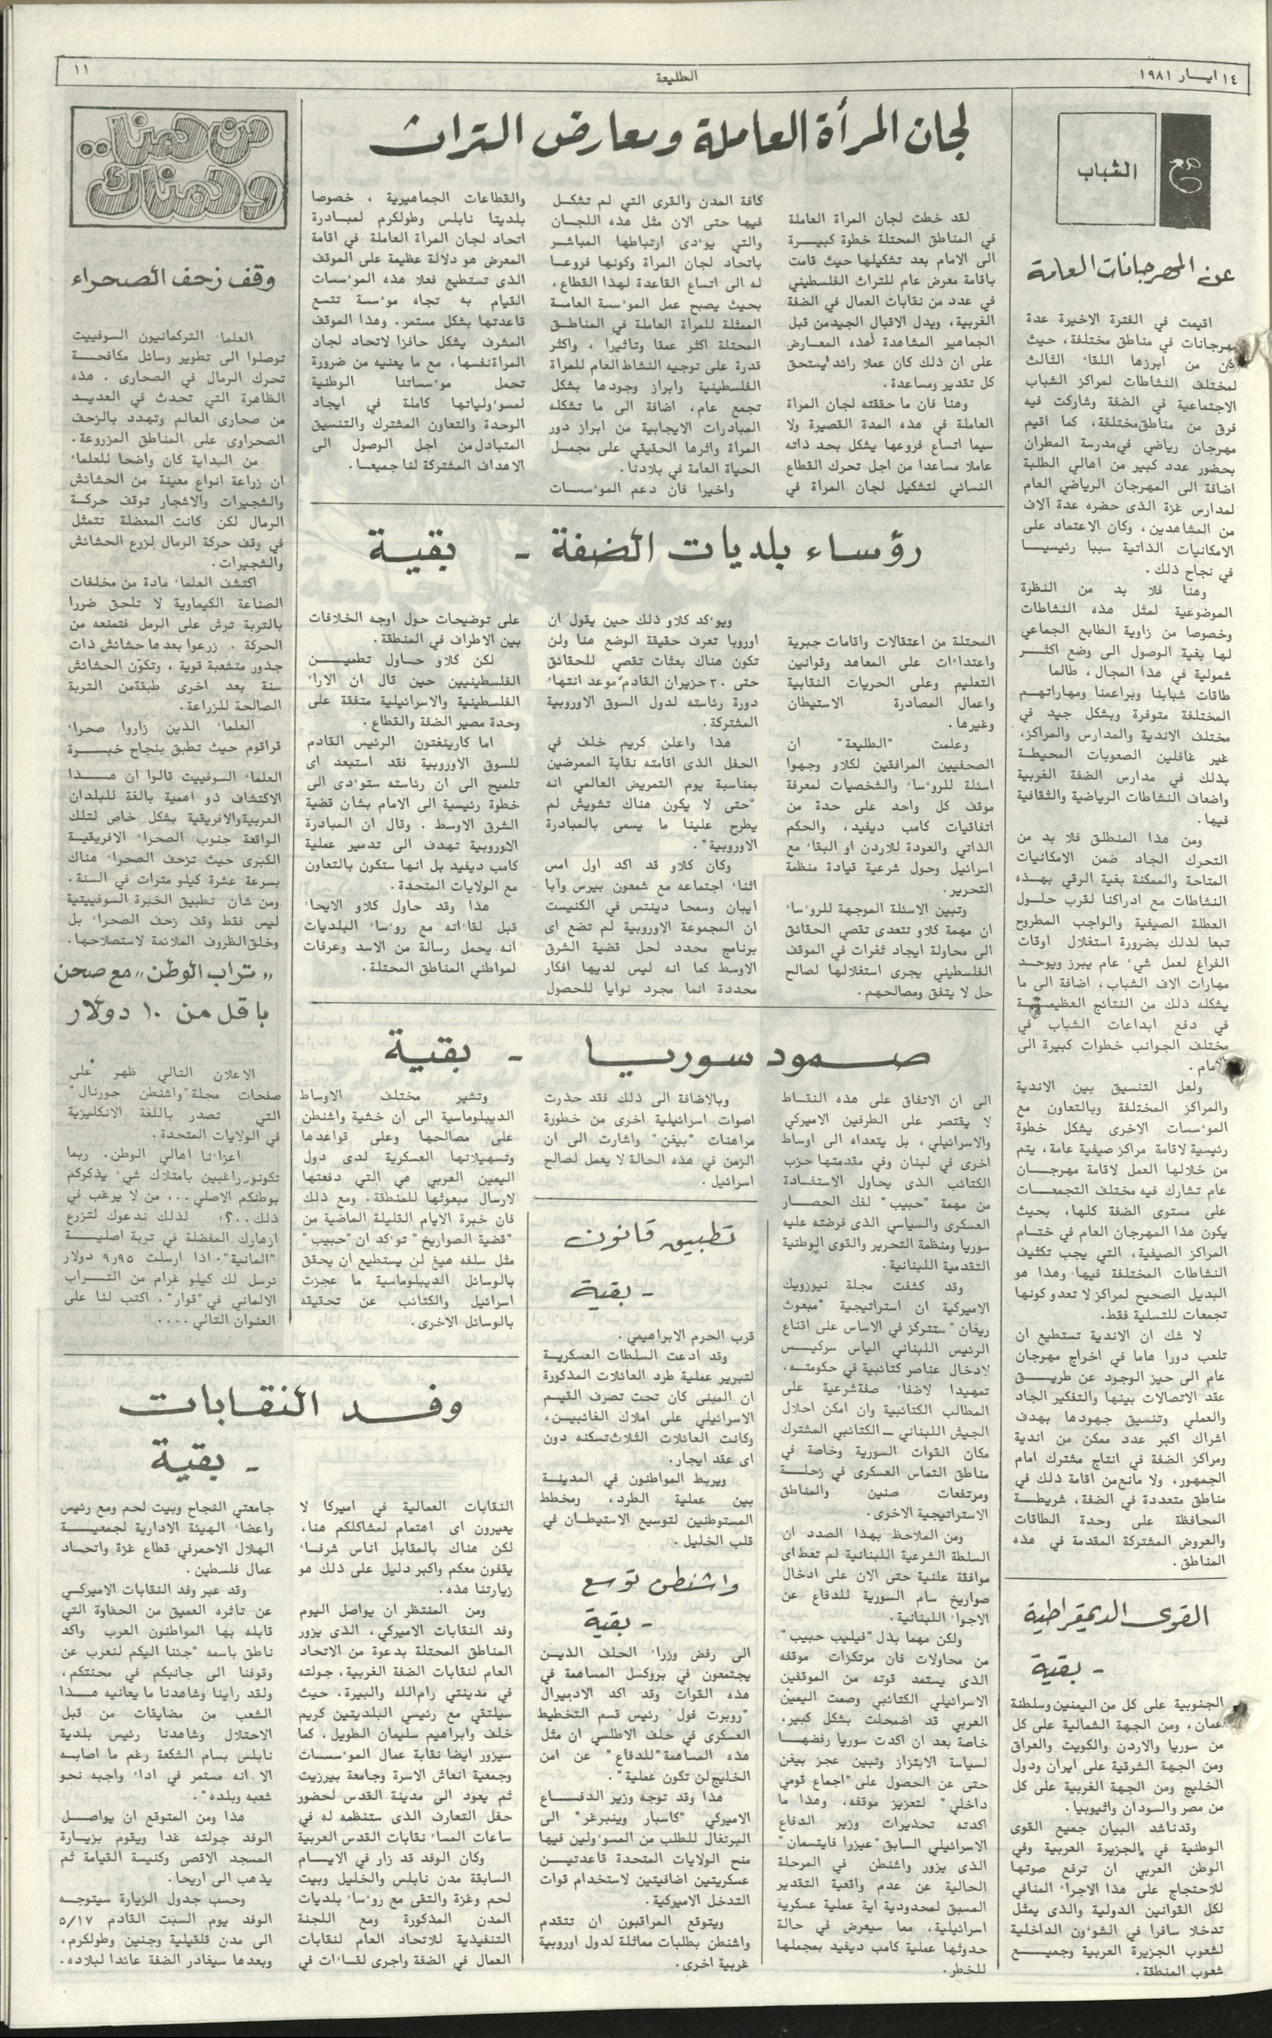 ١٤ ايار ١٩٨١
الطليعة
١١
مع
الشباب
عن المهرجانات العامة
اقيمت في الفترة الاخيرة عدة
مهرجانات في مناطق مختلفة، حيث
كان من ابرزها اللقاء الثالث
لمختلف النشاطات لمراكز الشباب
الاجتماعية في الضفة وشاركت فيه
فرق من مناطق مختلفة، كما اقيم
مهرجان رياضي في مدرسة المطران
بحضور عدد كبير من اهالي الطلبة
اضافة الى المهرجان الرياضي العام
لمدارس غزة الذى حضره عدة آلاف
من المشاهدين، وكان الاعتماد على
الامكانيات الذاتية سببا رئيسيا
في نجاح ذلك.
وهنا فلا بد من النظرة
الموضوعية لمثل هذه النشاطات
وخصوصا من زاوية الطابع الجماعي
لها بغية الوصول الى وضع اكثر
شمولية في هذا المجال، طالما
طاقات شبابنا وبراعمنا ومهاراتهم
المختلفة متوفرة وبشكل جيد في
مختلف الاندية والمدارس والمراكز،
غير غافلين الصعوبات المحيطة
بذلك في مدارس الضفة الغربية
واضعاف النشاطات الرياضية والثقافية
فيها.
ومن هذا المنطلق فلا بد من
التحرك الجاد ضمن الامكانيات
المتاحة والممكنة بغية الرقي بهذه
النشاطات مع ادراكنا لقرب حلول
العطلة الصيفية والواجب المطروح
تبعا لذلك بضرورة استغلال اوقات
الفراغ لعمل شيء عام يبرز ويوحد
مهارات الاف الشباب، اضافة الى ما
يشكله ذلك من النتائج العظيمة
في دفع ابداعات الشباب في
مختلف الجوانب خطوات كبيرة الى
الامام.
ولعل التنسيق بين الاندية
والمراكز المختلفة وبالتعاون مع
المؤسسات الاخرى يشكل خطوة
رئيسية لاقامة مراكز صيفية عامة، يتم
من خلالها العمل لاقامة مهرجان
عام تشارك فيه مختلف التجمعات
على مستوى الضفة كلها، بحيث
يكون هذا المهرجان العام في ختام
المراكز الصيفية، التي يجب تكثيف
النشاطات المختلفة فيها وهذا هو
البديل الصحيح لمراكز لا تعدو كونها
تجمعات للتسلية فقط.
لا شك ان الاندية تستطيع ان
تلعب دورا هاما في اخراج مهرجان
عام الى حيز الوجود عن طريق
عقد الاتصالات بينها والتفكير الجاد
والعملي وتنسيق جهودها بهدف
اشراك اكبر عدد ممكن من اندية
ومراكز الضفة في انتاج مشترك امام
الجمهور، ولا مانع من اقامة ذلك في
مناطق متعددة في الضفة، شريطة
المحافظة على وحدة الطاقات
والعروض المشتركة المقدمة في هذه
المناطق.
القوى الديمقراطية
- بقية
الجنوبية على كل من اليمنين وسلطنة
عمان، ومن الجهة الشمالية على كل
من سوريا والاردن والكويت والعراق
ومن الجهة الشرقية على ايران ودول
الخليج ومن الجهة الغربية على كل
من مصر والسودان واثيوبيا.
وقد ناشد البيان جميع القوى
الوطنية في الجزيرة العربية وفي
الوطن العربي ان ترفع صوتها
للاحتجاج على هذا الاجراء المنافي
لكل القوانين الدولية والذى يمثل
تدخلا سافرا في الشؤون الداخلية
لشعوب الجزيرة العربية وجميع
شعوب المنطقة.
لجان المرأة العاملة ومعارض التراث
لقد خطت لجان المرأة العاملة
في المناطق المحتلة خطوة كبيرة
الى الامام بعد تشكيلها حيث قامت
باقامة معرض عام للتراث الفلسطيني
في عدد من نقابات العمال في الضفة
الغربية، ويدل الاقبال الجيد من قبل
الجماهير المشاهدة لهذه المعارض
على ان ذلك كان عملا رائدا يستحق
كل تقدير ومساعدة.
وهنا فان ما حققته لجان المرأة
العاملة في هذه المدة القصيرة ولا
سيما اتساع فروعها يشكل بحد ذاته
عاملا مساعدا من اجل تحرك القطاع
النسائي لتشكيل لجان المرأة في
كافة المدن والقرى التي لم تشكل
فيها حتى الان مثل هذه اللجان
والتي يؤدى ارتباطها المباشر
باتحاد لجان المرأة وكونها فروعا
له الى اتساع القاعدة لهذا القطاع،
بحيث يصبح عمل المؤسسة العامة
الممثلة للمرأة العاملة في المناطق
المحتلة اكثر عمقا وتأثيرا، واكثر
قدرة على توجيه النشاط العام للمرأة
الفلسطينية وابراز وجودها بشكل
تجمع عام، اضافة الى ما تشكله
المبادرات الايجابية من ابراز دور
المرأة واثرها الحقيقي على مجمل
الحياة العامة في بلادنا.
واخيرا فان دعم المؤسسات
والقطاعات الجماهيرية، خصوصا
بلديتا نابلس وطولكرم لمبادرة
اتحاد لجان المرأة العاملة في اقامة
المعرض هو دلالة عظيمة على الموقف
الذى تستطيع فعلا هذه المؤسسات
القيام به تجاه مؤسسة تتسع
قاعدتها بشكل مستمر. وهذا الموقف
المشرف يشكل حافزا لاتحاد لجان
المرأة نفسها، مع ما يعنيه من ضرورة
تحمل مؤسساتنا الوطنية
لمسؤولياتها كاملة في ايجاد
الوحدة والتعاون المشترك والتنسيق
المتبادل من اجل الوصول الى
الاهداف المشتركة لنا جميعا.
رؤساء بلديات الضفة - بقية
المحتلة من اعتقالات واقامات جبرية
واعتداءات على المعاهد وقوانين
التعليم وعلى الحريات النقابية
واعمال المصادرة الاستيطان
وغيرها.
وعلمت "الطليعة" ان
الصحفيين المرافقين لكلاو وجهوا
اسئلة للرؤساء والشخصيات لمعرفة
موقف كل واحد على حدة من
اتفاقيات كامب ديفيد، والحكم
الذاتي والعودة للاردن او البقاء مع
اسرائيل وحول شرعية قيادة منظمة
التحرير.
وتبين الاسئلة الموجهة للرؤساء
ان مهمة كلاو تتعدى تقصي الحقائق
الى محاولة ايجاد ثغرات في الموقف
الفلسطيني يجرى استغلالها لصالح
حل لا يتفق ومصالحهم.
ويؤكد كلاو ذلك حين يقول ان
اوروبا تعرف حقيقة الوضع هنا ولن
تكون هناك بعثات تقصي للحقائق
حتى ٣٠ حزيران القادم موعد انتهاء
دورة رئاسته لدول السوق الاوروبية
المشتركة.
هذا واعلن كريم خلف في
الحفل الذى اقامته نقابة الممرضين
بمناسبة يوم التمريض العالمي انه
"حتى لا يكون هناك تشويش لم
يطرح علينا ما يسمى بالمبادرة
الاوروبية".
وكان كلاو قد اكد اول امس
اثناء اجتماعه مع شمعون بيرس وآبا
ايبان وسمحا دينتس في الكنيست
ان المجموعة الاوروبية لم تضع اى
برنامج محدد لحل قضية الشرق
الاوسط كما انه ليس لديها افكار
محددة انما مجرد نوايا للحصول
على توضيحات حول اوجه الخلافات
بين الاطراف في المنطقة.
لكن كلاو حاول تطمين
الفلسطينيين حين قال ان الاراء
الفلسطينية والاسرائيلية متفقة على
وحدة مصير الضفة والقطاع.
اما كارينغتون الرئيس القادم
للسوق الاوروبية فقد استبعد اى
تلميح الى ان رئاسته ستؤدى الى
خطوة رئيسية الى الامام بشأن قضية
الشرق الاوسط. وقال ان المبادرة
الاوروبية تهدف الى تدمير عملية
كامب ديفيد بل انها ستكون بالتعاون
مع الولايات المتحدة.
هذا وقد حاول كلاو الايحاء
قبل لقاءاته مع رؤساء البلديات
انه يحمل رسالة من الاسد وعرفات
لمواطني المناطق المحتلة.
صمود سوريا - بقية
الى ان الاتفاق على هذه النقاط
لا يقتصر على الطرفين الاميركي
والاسرائيلي، بل يتعداه الى اوساط
اخرى في لبنان وفي مقدمتها حزب
الكتائب الذى يحاول الاستفادة
من مهمة "حبيب" لفك الحصار
العسكرى والسياسي الذى فرضته عليه
سوريا ومنظمة التحرير والقوى الوطنية
التقدمية اللبنانية.
وقد كشفت مجلة نيوزويك
الاميركية ان استراتيجية "مبعوث
ريغان" ستتركز في الاساس على اقناع
الرئيس اللبناني الياس سركيس
لادخال عناصر كتائبية في حكومته،
تمهيدا لاضفاء صفة شرعية على
المطالب الكتائبية وان امكن احلال
الجيش اللبناني ــ الكتائبي المشترك
مكان القوات السورية وخاصة في
مناطق التماس العسكرى في زحلة
ومرتفعات صنين والمناطق
الاستراتيجية الاخرى.
ومن الملاحظ بهذا الصدد ان
السلطة الشرعية اللبنانية لم تعط اى
موافقة علنية حتى الان على ادخال
صواريخ سام السورية للدفاع عن
الاجواء اللبنانية.
ولكن مهما بذل "فيليب حبيب"
من محاولات فان مرتكزات موقفه
الذى يستمد قوته من الموقفين
الاسرائيلي الكتائبي وصمت اليمين
العربي قد اضمحلت بشكل كبير،
خاصة بعد ان اكدت سوريا رفضها
لسياسة الابتزاز وتبين عجز بيغن
حتى عن الحصول على "اجماع قومي
داخلي" لتعزيز موقفه، وهذا ما
اكدته تحذيرات وزير الدفاع
الاسرائيلي السابق "عيزرا فايتسمان"
الذى يزور واشنطن في المرحلة
الحالية عن عدم واقعية التقدير
المسبق لمحدودية اية عملية عسكرية
اسرائيلية، مما سيعرض في حالة
حدوثها عملية كامب ديفيد بمجملها
للخطر.
وبالاضافة الى ذلك فقد حذرت
اصوات اسرائيلية اخرى من خطورة
مراهنات "بيغن" واشارت الى ان
الزمن في هذه الحالة لا يعمل لصالح
اسرائيل.
وتشير مختلف الاوساط
الدبلوماسية الى ان خشية واشنطن
على مصالحها وعلى قواعدها
وتسهيلاتها العسكرية لدى دول
اليمين العربي هي التي دفعتها
لارسال مبعوثها للمنطقة. ومع ذلك
فان خبرة الايام القليلة الماضية من
"قضية الصواريخ" تؤكد ان "حبيب"
مثل سلفه هيغ لن يستطيع ان يحقق
بالوسائل الدبلوماسية ما عجزت
اسرائيل والكتائب عن تحقيقه
بالوسائل الاخرى.
تطبيق قانون
- بقية
قرب الحرم الابراهيمي.
وقد ادعت السلطات العسكرية
لتبرير عملية طرد العائلات المذكورة
ان المبنى كان تحت تصرف القيم
الاسرائيلي على املاك الغائبين،
وكانت العائلات الثلاث تسكنه دون
اى عقد ايجار.
ويربط المواطنون في المدينة
بين عملية الطرد، ومخطط
المستوطنين لتوسيع الاستيطان في
قلب الخليل.
واشنطن توسع
- بقية
الى رفض وزراء الحلف الذين
يجتمعون في بروكسل المساهمة في
هذه القوات وقد اكد الادميرال
"روبرت فول" رئيس قسم التخطيط
العسكرى في حلف الاطلسي ان مثل
هذه المساهمة "للدفاع" عن امن
الخليج لن تكون عملية".
هذا وقد توجه وزير الدفاع
الاميركي "كاسبار وينبرغر" الى
البرتغال للطلب من المسؤولين فيها
منح الولايات المتحدة قاعدتين
عسكريتين اضافيتين لاستخدام قوات
التدخل الاميركية.
ويتوقع المراقبون ان تتقدم
واشنطن بطلبات مماثلة لدول اوروبية
غربية اخرى.
من هنا..
وهناك
وقف زحف الصحراء
العلماء التركمانيون السوفييت
توصلوا الى تطوير وسائل مكافحة
تحرك الرمال في الصحارى. هذه
الظاهرة التي تحدث في العديد
من صحارى العالم وتهدد بالزحف
الصحراوى على المناطق المزروعة.
من البداية كان واضحا للعلماء
ان زراعة انواع معينة من الحشائش
والشجيرات والاشجار توقف حركة
الرمال لكن كانت المعضلة تتمثل
في وقف حركة الرمال لزرع الحشائش
والشجيرات.
اكتشف العلماء مادة من مخلفات
الصناعة الكيماوية لا تلحق ضررا
بالتربة ترش على الرمل فتمنعه من
الحركة. زرعوا بعدها حشائش ذات
جذور متشعبة قوية، وتكوّن الحشائش
سنة بعد اخرى طبقة من التربة
الصالحة للزراعة.
العلماء الذين زاروا صحراء
قراقوم حيث تطبق بنجاح خبرة
العلماء السوفييت قالوا ان هذا
الاكتشاف ذو اهمية بالغة للبلدان
العربية والافريقية بشكل خاص لتلك
الواقعة جنوب الصحراء الافريقية
الكبرى حيث تزحف الصحراء هناك
بسرعة عشرة كيلو مترات في السنة.
ومن شأن تطبيق الخبرة السوفييتية
ليس فقط وقف زحف الصحراء بل
وخلق الظروف الملائمة لاستصلاحها.
"تراب الوطن" مع صحن
باقل من ١٠ دولار
الاعلان التالي ظهر على
صفحات مجلة "واشنطن جورنال"
التي تصدر باللغة الانكليزية
في الولايات المتحدة.
اعزاءنا اهالي الوطن. ربما
تكونوا راغبين بامتلاك شيء يذكركم
بوطنكم الاصلي... من لا يرغب في
ذلك..؟ لذلك ندعوك لتزرع
ازهارك المفضلة في تربة اصلية
"المانية". اذا ارسلت ٩٫٩٥ دولار
نرسل لك كيلو غرام من التراب
الالماني في "قوار". اكتب لنا على
العنوان التالي....
وفد النقابات
- بقية
النقابات العمالية في اميركا لا
يعيرون اى اهتمام لمشاكلكم هنا،
لكن هناك بالمقابل اناس شرفاء
يقفون معكم واكبر دليل على ذلك هو
زيارتنا هذه.
ومن المنتظر ان يواصل اليوم
وفد النقابات الاميركي، الذى يزور
المناطق المحتلة بدعوة من الاتحاد
العام لنقابات الضفة الغربية، جولته
في مدينتي رام الله والبيرة، حيث
سيلتقي مع رئيسي البلديتين كريم
خلف وابراهيم سليمان الطويل، كما
سيزور ايضا نقابة عمال المؤسسات
وجمعية انعاش الاسرة وجامعة بيرزيت
ثم يعود الى مدينة القدس لحضور
حفل التعارف الذى ستنظمه له في
ساعات المساء نقابات القدس العربية
وكان الوفد قد زار في الايام
السابقة مدن نابلس والخليل وبيت
لحم وغزة والتقى مع رؤساء بلديات
المدن المذكورة ومع اللجنة
التنفيذية للاتحاد العام لنقابات
العمال في الضفة واجرى لقاءات في
جامعتي النجاح وبيت لحم ومع رئيس
واعضاء الهيئة الادارية لجمعية
الهلال الاحمر في قطاع غزة واتحاد
عمال فلسطين.
وقد عبر وفد النقابات الاميركي
عن تأثره العميق من الحفاوة التي
قابله بها المواطنون العرب واكد
ناطق باسمه "جئنا اليكم لنعرب عن
وقوفنا الى جانبكم في محنتكم،
ولقد راينا وشاهدنا ما يعانيه هذا
الشعب من مضايقات من قبل
الاحتلال وشاهدنا رئيس بلدية
نابلس بسام الشكعة رغم ما اصابه
الا انه مستمر في اداء واجبه نحو
شعبه وبلده".
هذا ومن المتوقع ان يواصل
الوفد جولته غدا ويقوم بزيارة
المسجد الاقصى وكنيسة القيامة ثم
يذهب الى اريحا.
وحسب جدول الزيارة سيتوجه
الوفد يوم السبت القادم ٥/١٧
الى مدن قلقيلية وجنين وطولكرم،
وبعدها سيغادر الضفة عائدا لبلاده.